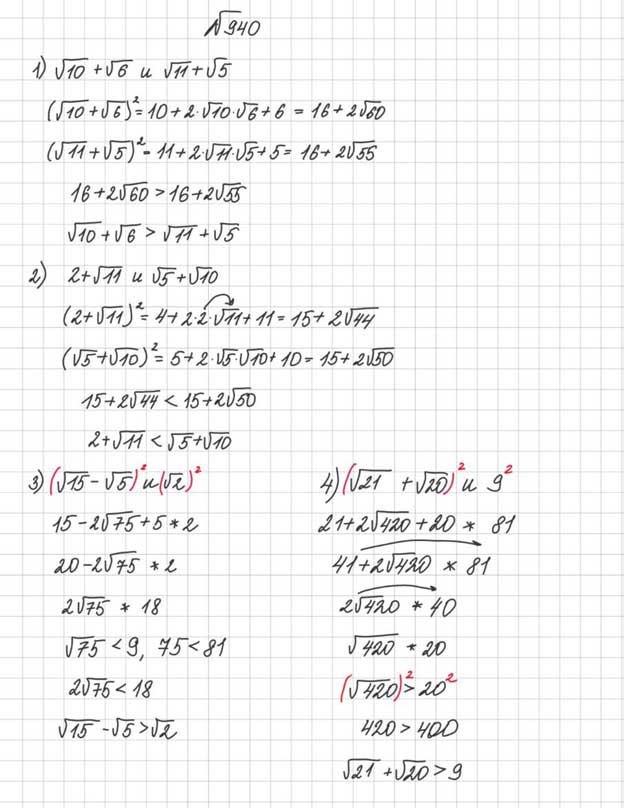 №940
1) √10 + √6 и √11 + √5
(√10 + √6)² = 10 + 2·√10·√6 + 6 = 16 + 2√60
(√11 + √5)² = 11 + 2·√11·√5 + 5 = 16 + 2√55
16 + 2√60 > 16 + 2√55
√10 + √6 > √11 + √5
2) 2 + √11 и √5 + √10
(2 + √11)² = 4 + 2·2·√11 + 11 = 15 + 2√44
(√5 + √10)² = 5 + 2·√5·√10 + 10 = 15 + 2√50
15 + 2√44 < 15 + 2√50
2 + √11 < √5 + √10
3) (√15 - √5)² и (√2)²
15 - 2√75 + 5 * 2
20 - 2√75 * 2
2√75 * 18
√75 < 9, 75 < 81
2√75 < 18
√15 - √5 > √2
4) (√21 + √20)² и 9²
21 + 2√420 + 20 * 81
41 + 2√420 * 81
2√420 * 40
√420 * 20
(√420)² > 20²
420 > 400
√21 + √20 > 9